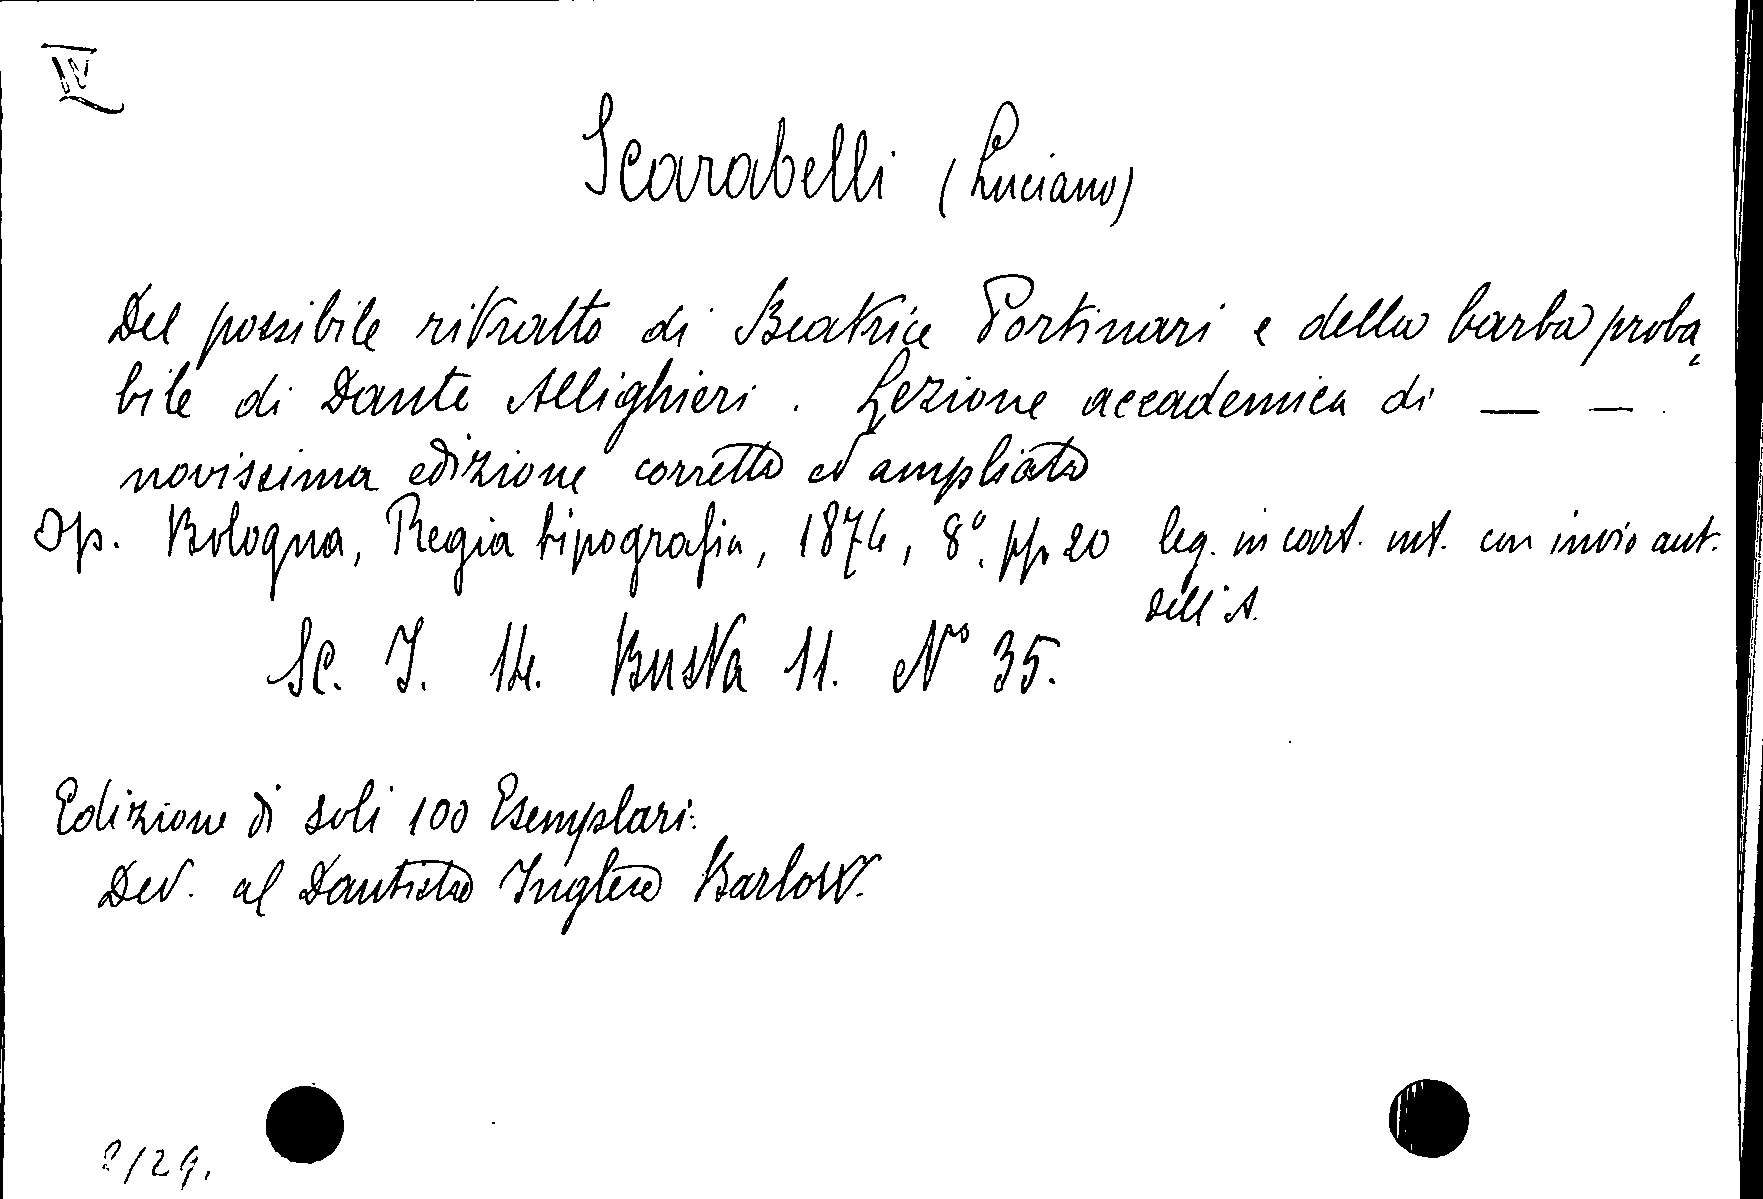 IV
Scarabelli (Luciano)
Del possibile ritratto di Beatrice Portinari e della barba proba„
bile di Dante Allighieri. Lezione accademica di — —
novissima edizione corretta ed ampliata
Op. Bologna, Regia tipografia, 1874, 8°. pp. 20 leg. in cart. int. con invio aut.
dell'A.
Sc. I. 14. Busta 11. N° 35.
Edizione di soli 100 Esemplari.
Ded. al Dantista Inglese Barlow.
8/29.